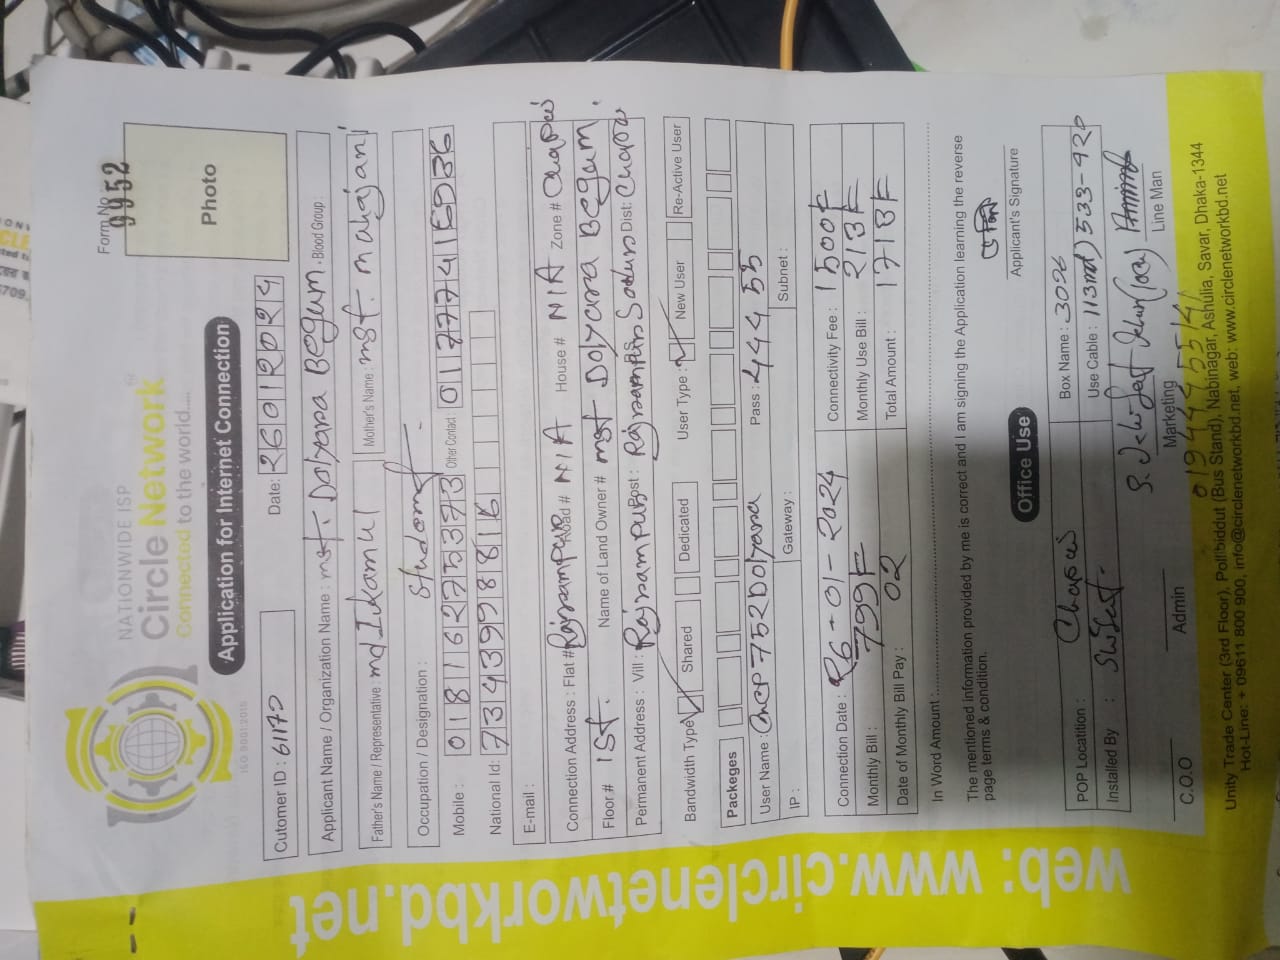 Form No
9952
NATIONWIDE ISP
Circle Network
Connected to the world....
ISO 9001:2015
Application for Internet Connection
Photo
Cutomer ID : 61170
Date: 26012024
Applicant Name / Organization Name : mst. Dolyara Begum. Blood Group :
Father's Name / Representative : md Idamul Mother's Name : mst. mahajani
Occupation / Designation : Student.
Mobile : 01811627 Other Contact :
National Id:
E-mail :
Connection Address : Flat # Rajrampur Road # N/A House # N/A Zone # Chapai
Floor # 1st. Name of Land Owner # mst Dolyara Begum.
Permanent Address : Vill : Rajrampur Post : Rajrampur P.S Dist:
Bandwidth Type Shared Dedicated User Type : New User Re-Active User
Packeges
User Name : Chap752Dolyara Pass : 444 55
IP : Gateway : Subnet :
Connection Date : 26-01-2024 Connectivity Fee : 1500
Monthly Bill : 799 Monthly Use Bill : 213
Date of Monthly Bill Pay : 02 Total Amount : 1713
In Word Amount :
The mentioned information provided by me is correct and I am signing the Application learning the reverse
page terms & condition.
Applicant's Signature
Office Use
POP Locatition : Chapai Box Name : 3026
Installed By : Use Cable : 113
C.O.O Admin Marketing Line Man
Unity Trade Center (3rd Floor), Pollibiddut (Bus Stand), Nabinagar, Ashulia, Savar, Dhaka-1344
Hot-Line: + 09611 800 900, info@circlenetworkbd.net, web: www.circlenetworkbd.net
web: www.circlenetworkbd.net